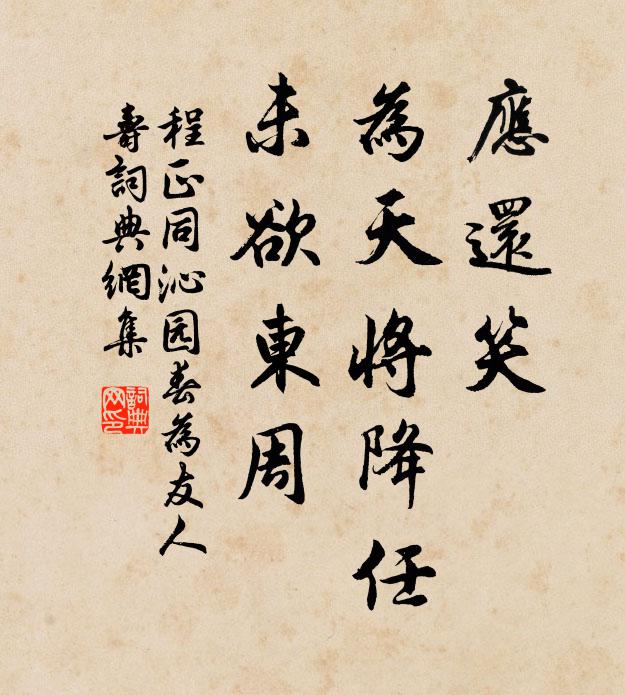 應還笑
為天將降任
未欲東周
程正同沁园春為友人
壽詞典網集
詞典
网印